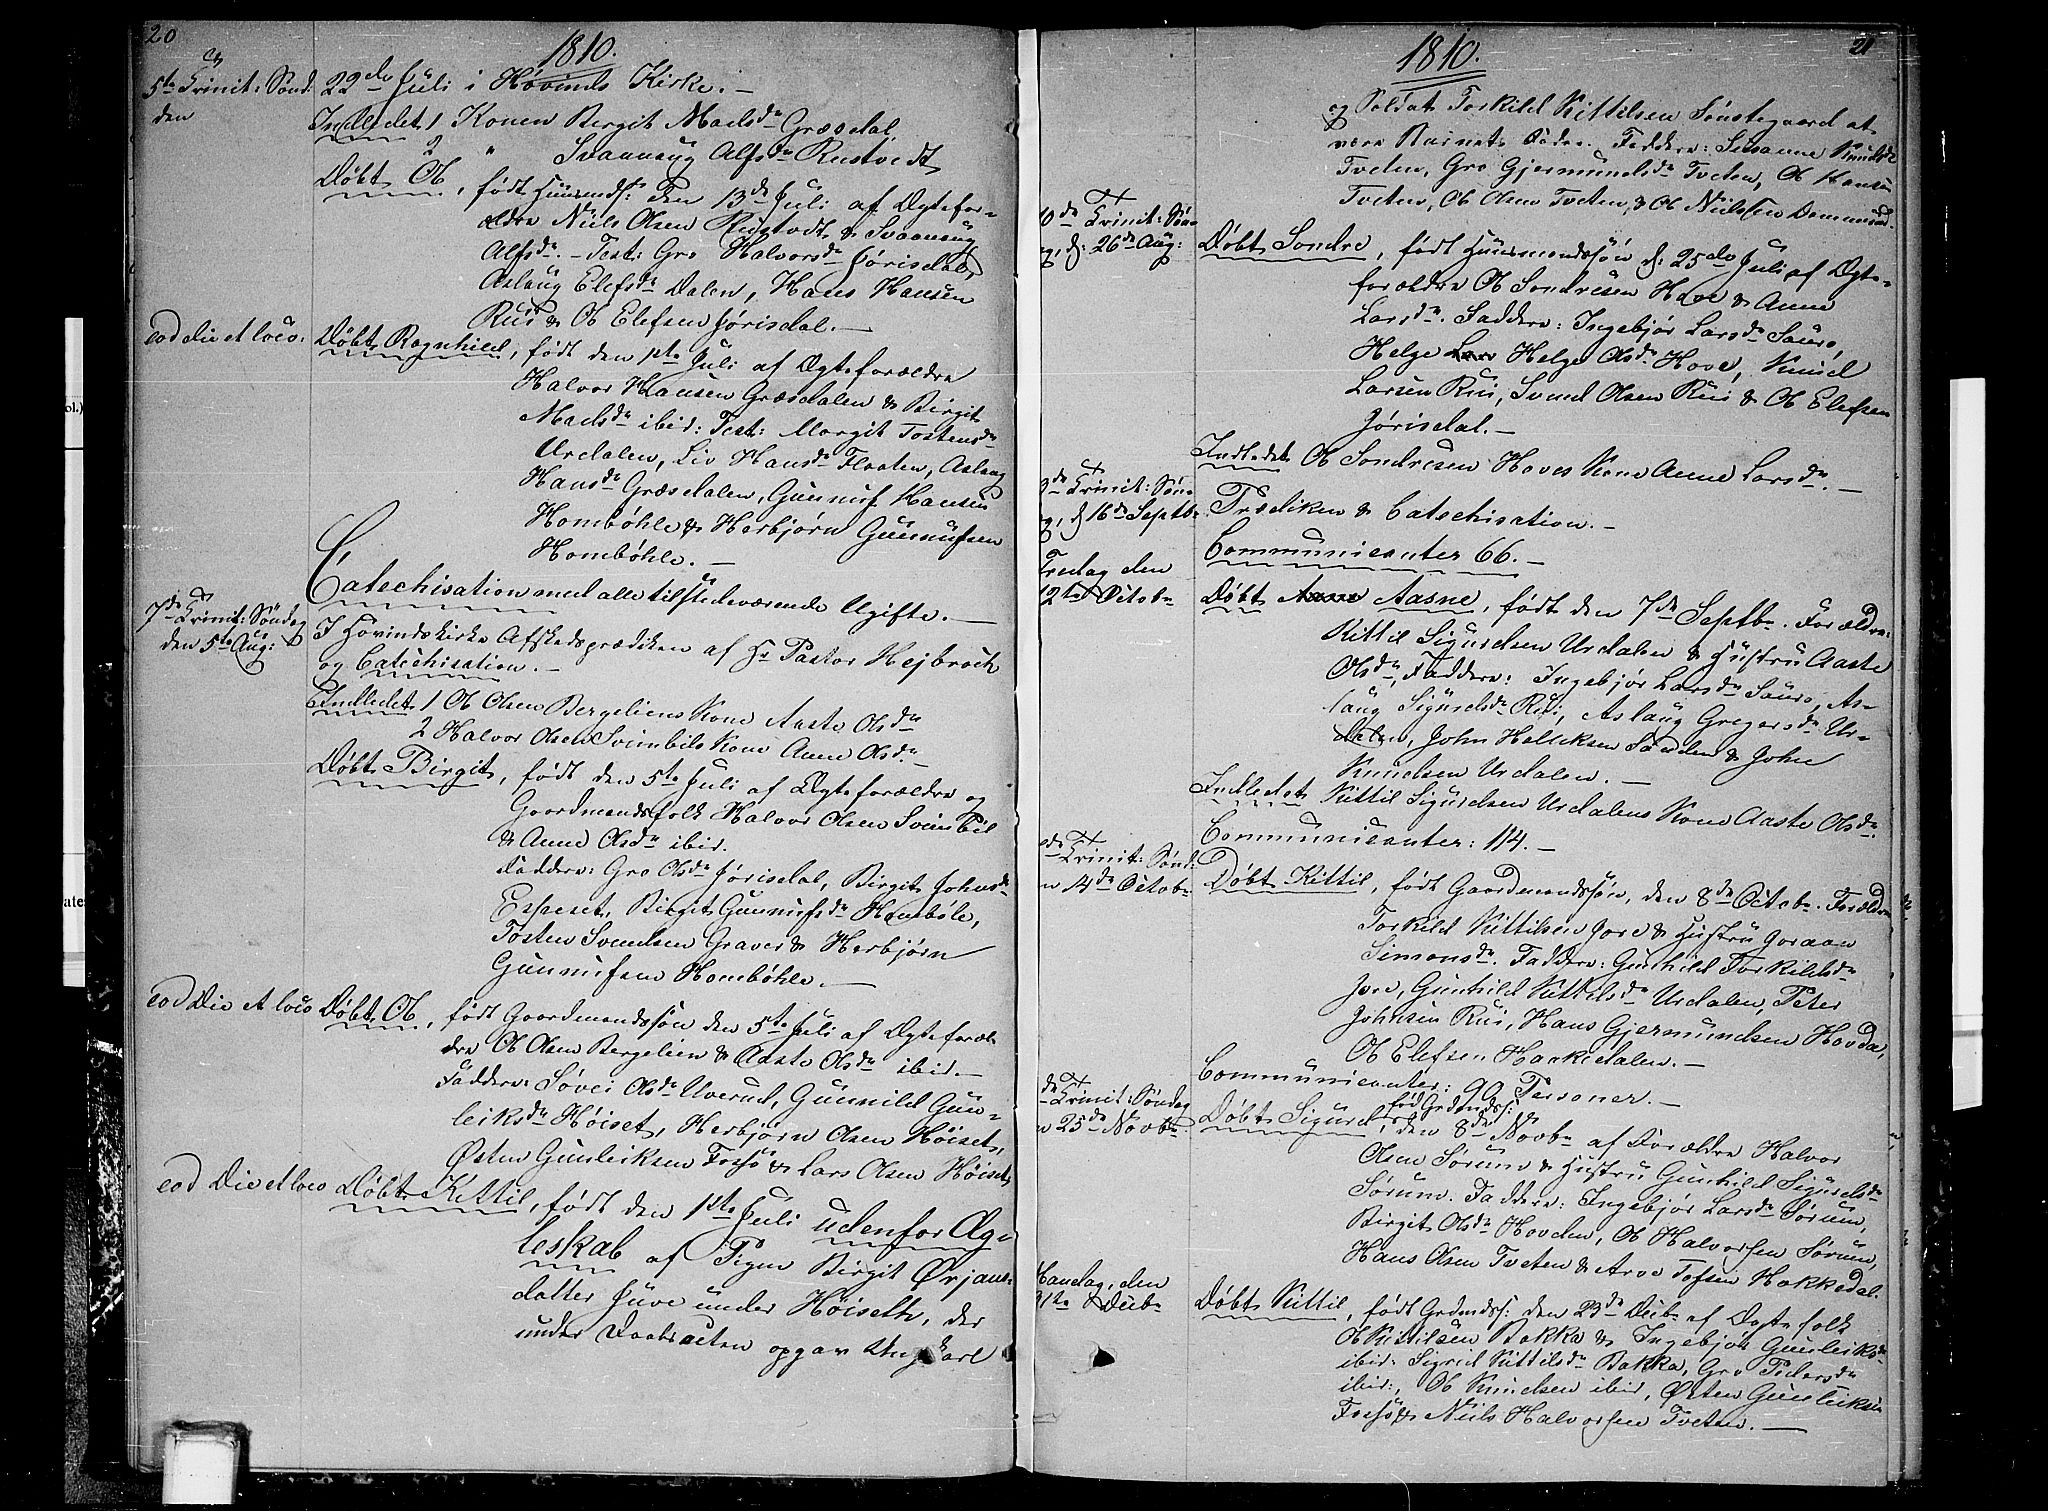 20
1810.
5te Trinit: Sönd: 22de Juli i Hövinds Kirke. —
den
Indledet 1 Konen Bergit Madsdr Græsdal,
2 " Svaansug Alfsdr Rustvedt
Döbt Ol, født Huusmdss: den 13de Juli af Ægtefor-
ældre Niels Olsen Rustvedt & Svaansug
Alfsdr. – Test: Gro Halvorsdr Jørisdal,
Aslaug Elefsdr Dalen, Hans Hansen
Rui & Ol Elefsen Jørisdal. —
eod die et loco: Döbt Ragnhild, født den 1ste Juli af Ægteforældre
Halvor Hansen Græsdalen & Birgit
Madsdr ibid: Test: Margit Tostensdr
Urdalen, Liv Hansdr Flaaten, Aslaug
Hansdr Græsdalen, Gunnuf Hansen
Hombøhle & Herbjørn Gunnufsen
Hombøhle. —
Catechisation med alle tilstedeværende Ugifte. —
7de Trinit: Søndag
den 5te Aug:
I Hovindskirke Afskedsprædiken af Hr Pastor Hejbroch
og Catechisation. —
Indledet 1 Ol Olsen Bergeliens Kone Aaste Olsdr
2 Halvor Olsen Svimbils Kone Anne Olsdr. —
Døbt Birgit, født den 5te Juli af Ægteforældre og
Gaardmandsfolk Halvor Olsen Svimbil
& Anne Olsdr ibid.
Faddere: Gro Olsdr Jørisdal, Birgit Johnsdr
Espeset, Birgit Gunnufsdr Hombøle,
Tosten Svendsen Graver & Herbjørn
Gunnufsen Hombøhle. —
eod Die et loco Døbt Ol, født Gaardmandssøn den 5te Juli af Ægteforæl-
dre Ol Olsen Bergelien & Aaste Olsdr ibid. —
Faddere: Søvei Olsdr Uverud, Gunnild Gun-
leiksdr Høiset, Herbjørn Olsen Høiset,
Østen Gunleiksen Fossø & Lars Olsen Høiset,
eod Die et loco Døbt Kittil, født den 1ste Juli udenfor Æg-
teskab af Pigen Birgit Ørjans-
datter Juve under Høiseth, der
under Daabsacten opgav Ungkarl
1810.
21
og Soldat Torkild Kittilsen Sønstegaard at
være Barnets Fader. Faddere: Susanne Knudsdr
Tveten, Gro Gjermundsdr Tveten, Ol Hansen
Tveten, Ol Olsen Tveten, & Ol Nielsen Demmerud.
10de Trinit: Søn-
g, d: 26de Aug:
Døbt Sondre, født Huusmandssøn d: 25de Juli af Ægte-
forældre Ol Sondresen Hove & Anne
Larsdr. Faddere: Ingebjør Larsdr Sauro,
Helge Lars Helge Olsdr Hove, Knud
Larsen Rui, Svend Olsen Rui & Ol Elefsen
Jørisdal. —
Indledet Ol Sondresen Hoves Kone Anne Larsdr. —
3de Trinit: Søn-
g, d 16de Septbr.
Prædiken & Catechisation. —
Communicanter 66. —
Fredag den
12te Octobr
Døbt Aasne Aasne, født den 7de Septbr. Forældre:
Kittil Sigurdsen Urdalen & Hustru Aaste
Olsdr, Faddere: Ingebjør Larsdr Sauro, As-
laug Sigurdsdr Rui, Aslaug Gregersdr Ur-
dalen, John Helleksen Sanden & John
Knudsen Urdalen. —
Indledet Kittil Sigurdsen Urdalens Kone Aaste Olsdr.
Communicanter: 114. —
de Trinit: Sønd:
n 14de Octobr
Døbt Kittil, født Gaardmandssøn, den 8de Octobr. Forældre
Torkild Kittilsen Jore & Hustru Joraan
Simonsdr. Faddere: Gunhild Torkildsdr
Jore, Gunhild Kittilsdr Urdalen, Peter
Johnsen Rui, Hans Gjermundsen Hovda,
Ol Elefsen Haakedalen. —
Communicanter: 99 Personer. —
de Trinit: Søndag
n 25de Novbr.
Døbt Sigurd, fød Grdmdss: den 8de Novbr af Forældre Halvor
Olsen Sørum & Hustru Gunhild Sigurdsdr
Sørum. Faddere: Ingebjør Larsdr Sørum,
Birgit Olsdr Hovden, Ol Halvorsen Sørum,
Hans Olsen Tveten & Arve Tofsen Hakkedal.
Mandag, den
31te Decbr
Døbt Kittil, født Grdmdss: den 23de Decbr af Ægtefolk
Ol Kittilsen Bakka & Ingebjør Gunleiksdr
ibid: Sigrid Kittilsdr Bakka, Gro Pedersdr
ibid:, Ol Knudsen ibid, Østen Gunleiksen
Fossø & Niels Halvorsen Tveten. —